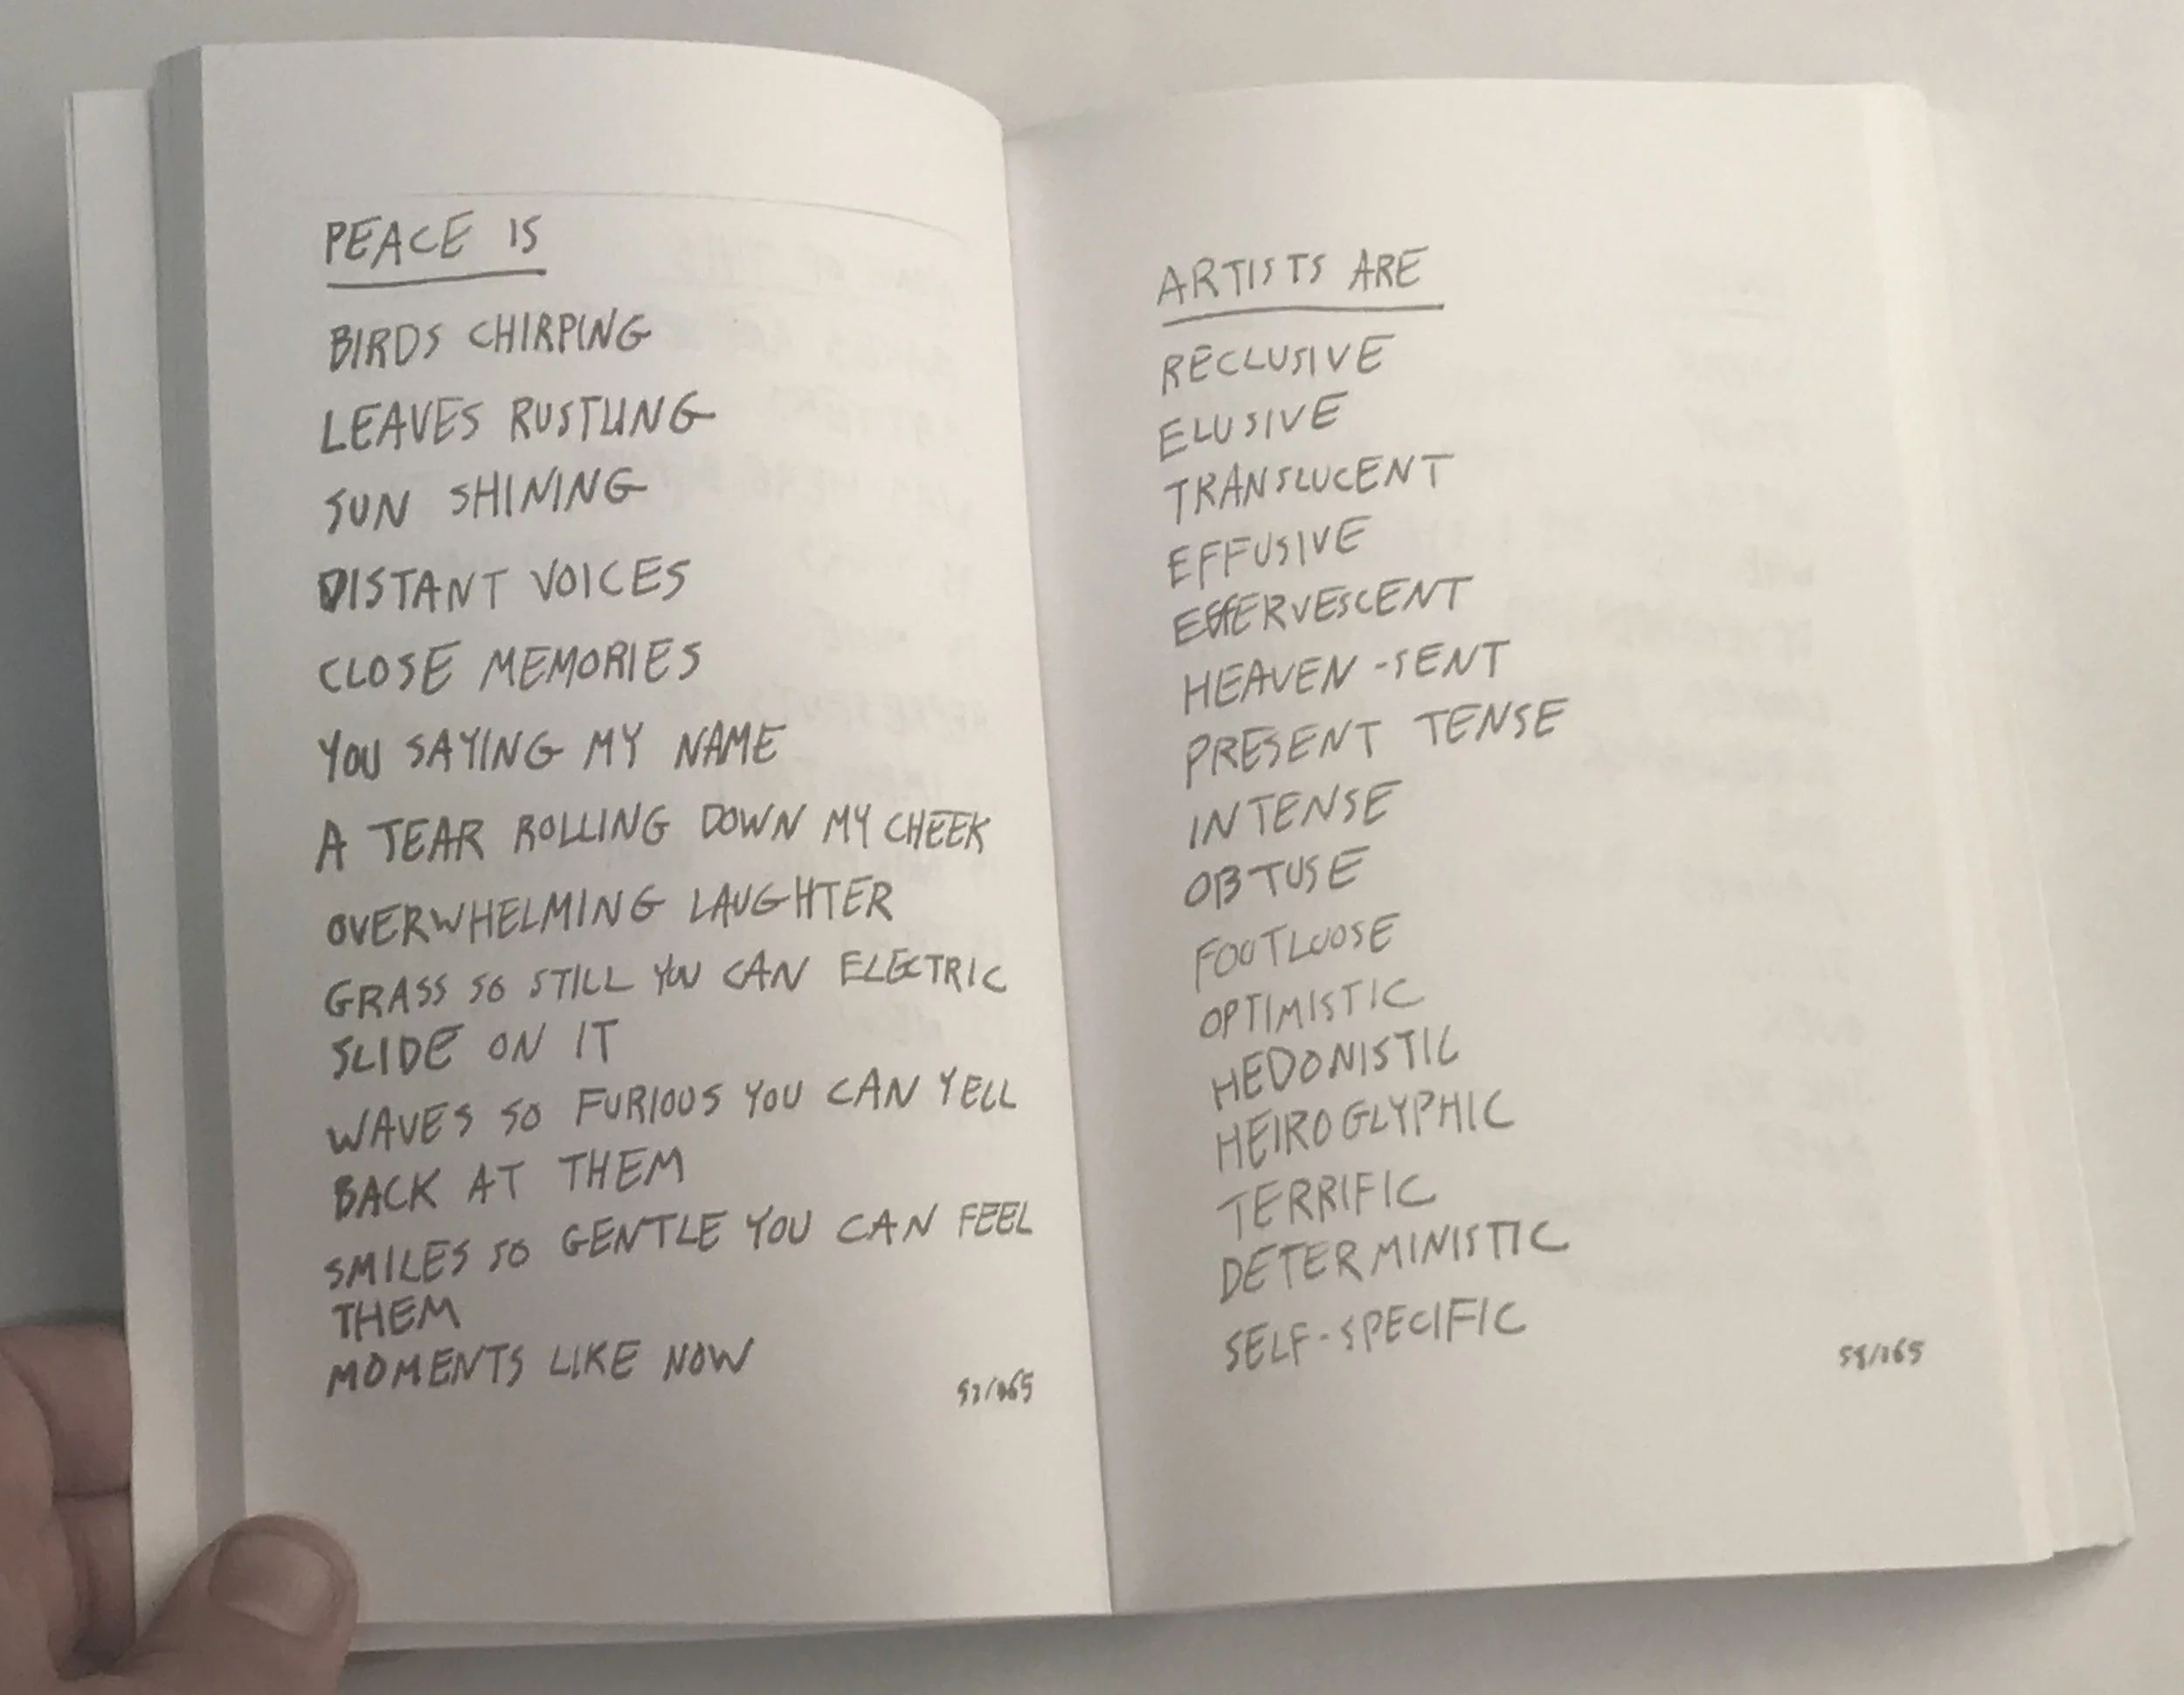 PEACE IS
BIRDS CHIRPING
LEAVES RUSTLING
SUN SHINING
DISTANT VOICES
CLOSE MEMORIES
YOU SAYING MY NAME
A TEAR ROLLING DOWN MY CHEEK
OVERWHELMING LAUGHTER
GRASS SO STILL YOU CAN ELECTRIC
SLIDE ON IT
WAVES SO FURIOUS YOU CAN YELL
BACK AT THEM
SMILES SO GENTLE YOU CAN FEEL
THEM
MOMENTS LIKE NOW
57/365
ARTISTS ARE
RECLUSIVE
ELUSIVE
TRANSLUCENT
EFFUSIVE
EFFERVESCENT
HEAVEN-SENT
PRESENT TENSE
INTENSE
OBTUSE
FOOTLOOSE
OPTIMISTIC
HEDONISTIC
HEIROGLYPHIC
TERRIFIC
DETERMINISTIC
SELF-SPECIFIC
58/365